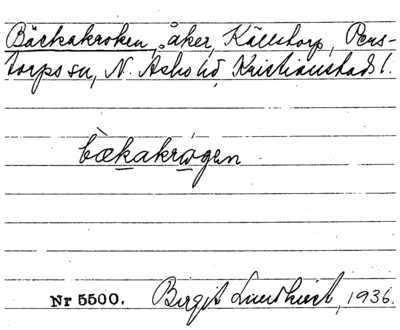 Bäckakroken, åker, Källstorp, Pers-
torps sn, N. Åsbo hd, Kristianstads l.
bækakrogen
Nr 5500. Birgit Lundkvist, 1936.